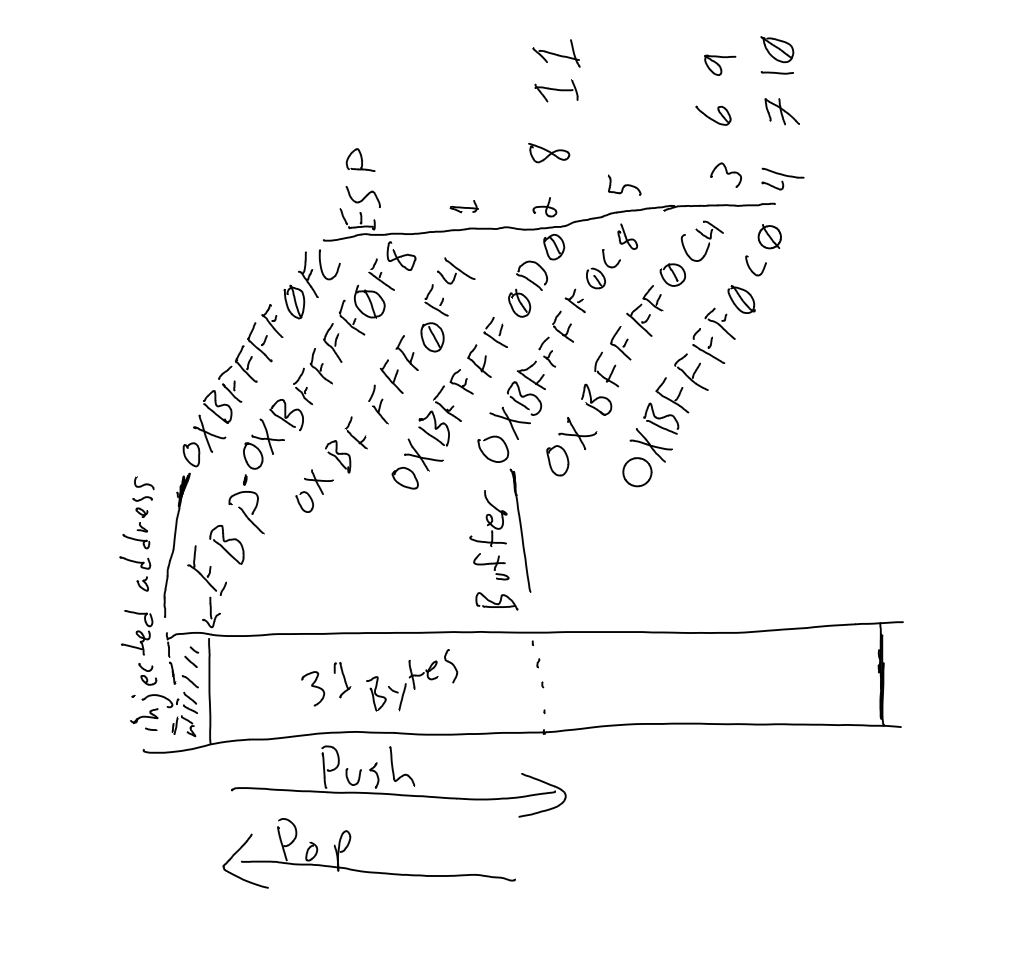 ESP
1
2 8 11
5
3 6 9
4 7 10
0XBFFFF0FC
EBP-0XBFFFF0F8
0XBFFFF0F4
0XBFFFF0D0
0XBFFFF0C8
0XBFFFF0C4
0XBFFFF0C0
injected address
Buffer
31 Bytes
Push
Pop